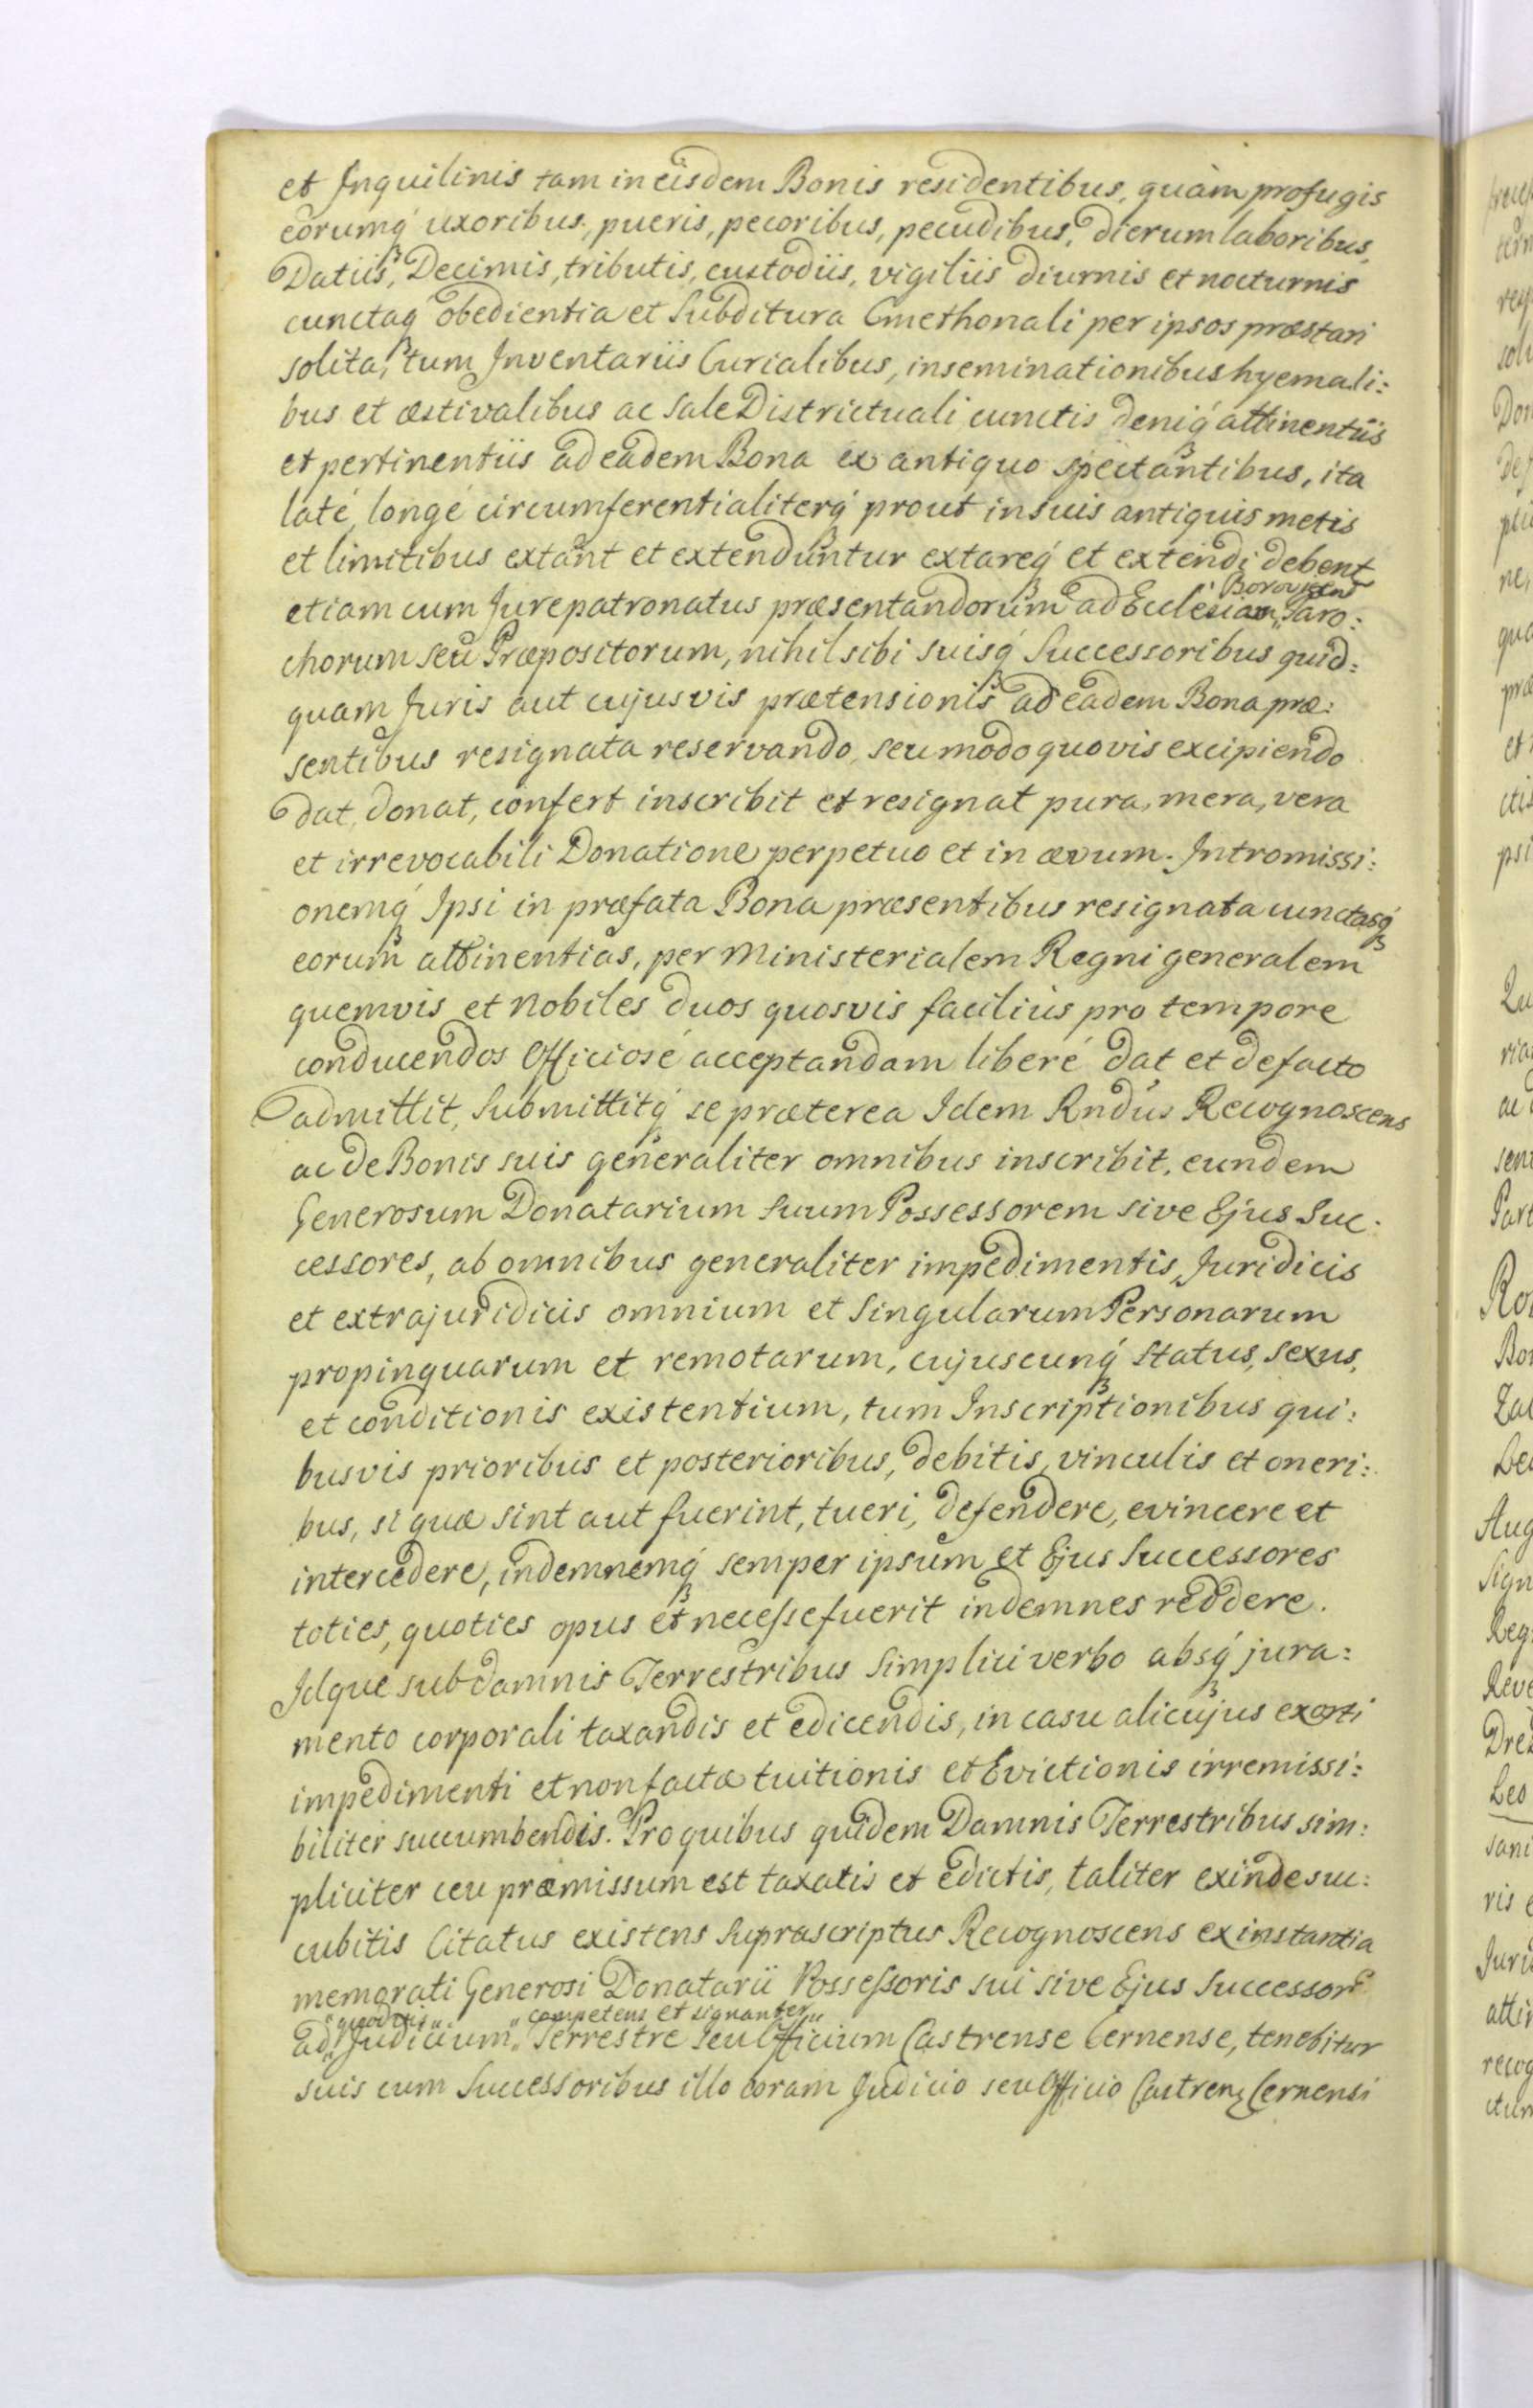 et Inquilinis tam in eisdem Bonis residentibus, quàm profugis
eorumq́ uxoribus, pueris, pecoribus, pecudibus, dierum laboribus,
Datiis, Decimis, tributis, custodiis, vigiliis diurnis et nocturnis
cunctaq́ obedientia et Subditura Cmethonali per ipsos præstari
solita, tum Inventariis Curialibus, inseminationibus hyemali:
bus et æstivalibus ac Sale Districtuali cunctis deniq́ attinentiis
et pertinentiis ad eadem Bona ex antiquo spectantibus, ita
laté, longé circumferentialiterq́ prout in suis antiquis metis
et limitibus extant et extenduntur extareq́ et extendi debent
etiam cum Jurepatronatus præsentandorum ad Ecclesiam „ Paro:
chorum seu Præpositorum, nihil sibi suisq́ Successoribus quid:
quam Juris aut cujusvis prætensionis ad eadem Bona præ:
sentibus resignata reservando, seu modo quovis excipiendo
dat, donat, confert inscribit et resignat pura, mera, vera
et irrevocabili Donatione perpetuo et in ævum. Intromissi:
onemq́ Ipsi in præfata Bona præsentibus resignata cunctasq́
eorum attinentias, per Ministerialem Regni generalem
quemvis et Nobiles duos quosvis facilius pro tempore
conducendos Officiosé acceptandam liberé dat et defacto
admittit, Submittitq́ se præterea Idem Rndus Recognoscens
ac de Bonis suis generaliter omnibus inscribit, eundem
Generosum Donatarium suum Possessorem sive Ejus Suc:
cessores, ab omnibus generaliter impedimentis, Juridicis
et extrajuridicis omnium et Singularum Personarum
propinquarum et remotarum, cujuscunq́ Status, sexus,
et conditionis existentium, tum Inscriptionibus qui:
busvis prioribus et posterioribus, debitis, vinculis et oneri:
bus, si quæ sint aut fuerint, tueri, defendere, evincere et
intercedere, indemnemq́ semper ipsum et Ejus Successores
toties, quoties opus et necesse fuerit indemnes reddere.
Idque sub damnis Terrestribus simplici verbo absq́ jura:
mento corporali taxandis et edicendis, in casu alicujus exorti
impedimenti et non factæ tuitionis et Evictionis irremissi:
biliter succumbendis. Pro quibus quidem Damnis Terrestribus sim:
pliciter ceu præmissum est taxatis et edictis, taliter exinde suc:
cubitis Citatus existens Suprascriptus Recognoscens ex instantia
memorati Generosi Donatarii Possessoris sui sive Ejus Successor
„quodvis„ „competens et signanter„
ad „ Judicium „ Terrestre seu Officium Castrense Cernense, tenebitur
suis cum Successoribus illo coram Judicio seu Officio Castren Cernensi